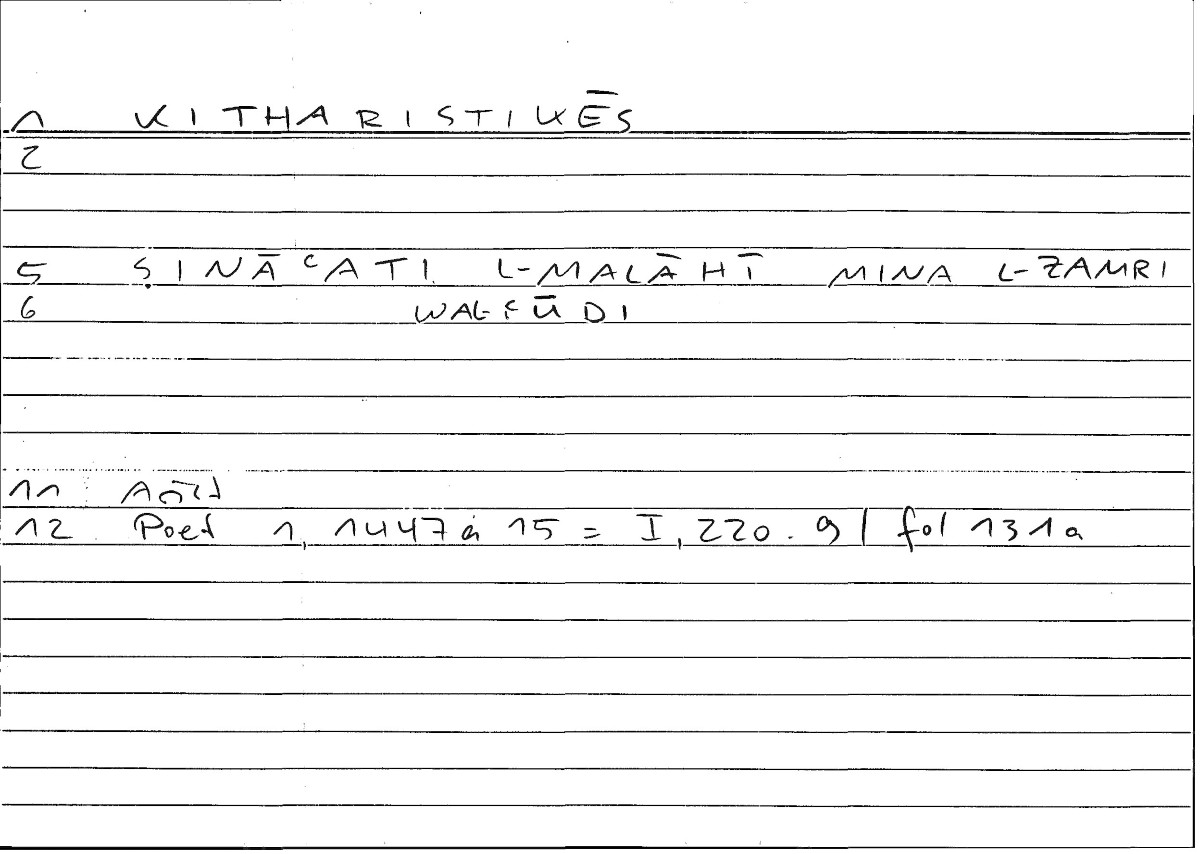 1 KITHARISTIKĒS
2
5 ṢINĀʿATI L-MALĀHĪ MINA L-ZAMRI
6 WAL-ʿŪDI
11
12 Poet 1, 1447a 15 = I, 220.9 / fol 131a